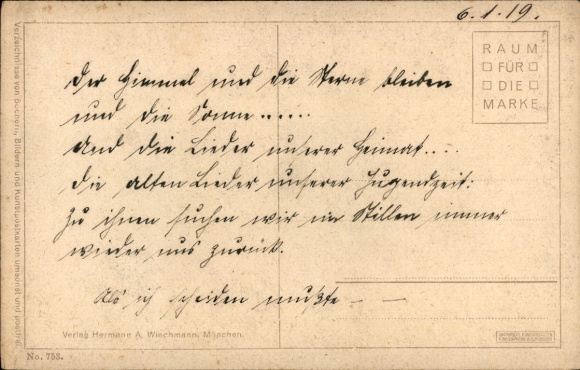 6.1.19.
RAUM
FÜR
DIE
MARKE
Der Himmel und die Sterne bleiben
und die Sonne......
And die Lieder unserer Heimat...
Die alten Lieder unserer Jugendzeit:
Zu ihnen suchen wir im Stillen immer
wieder uns zurück.
Als ich scheiden mußte — —
Verlag Hermann A. Wiechmann, München.
No. 753.
Verzeichnisse von Büchern, Bildern und Kunstpostkarten umsonst und postfrei.